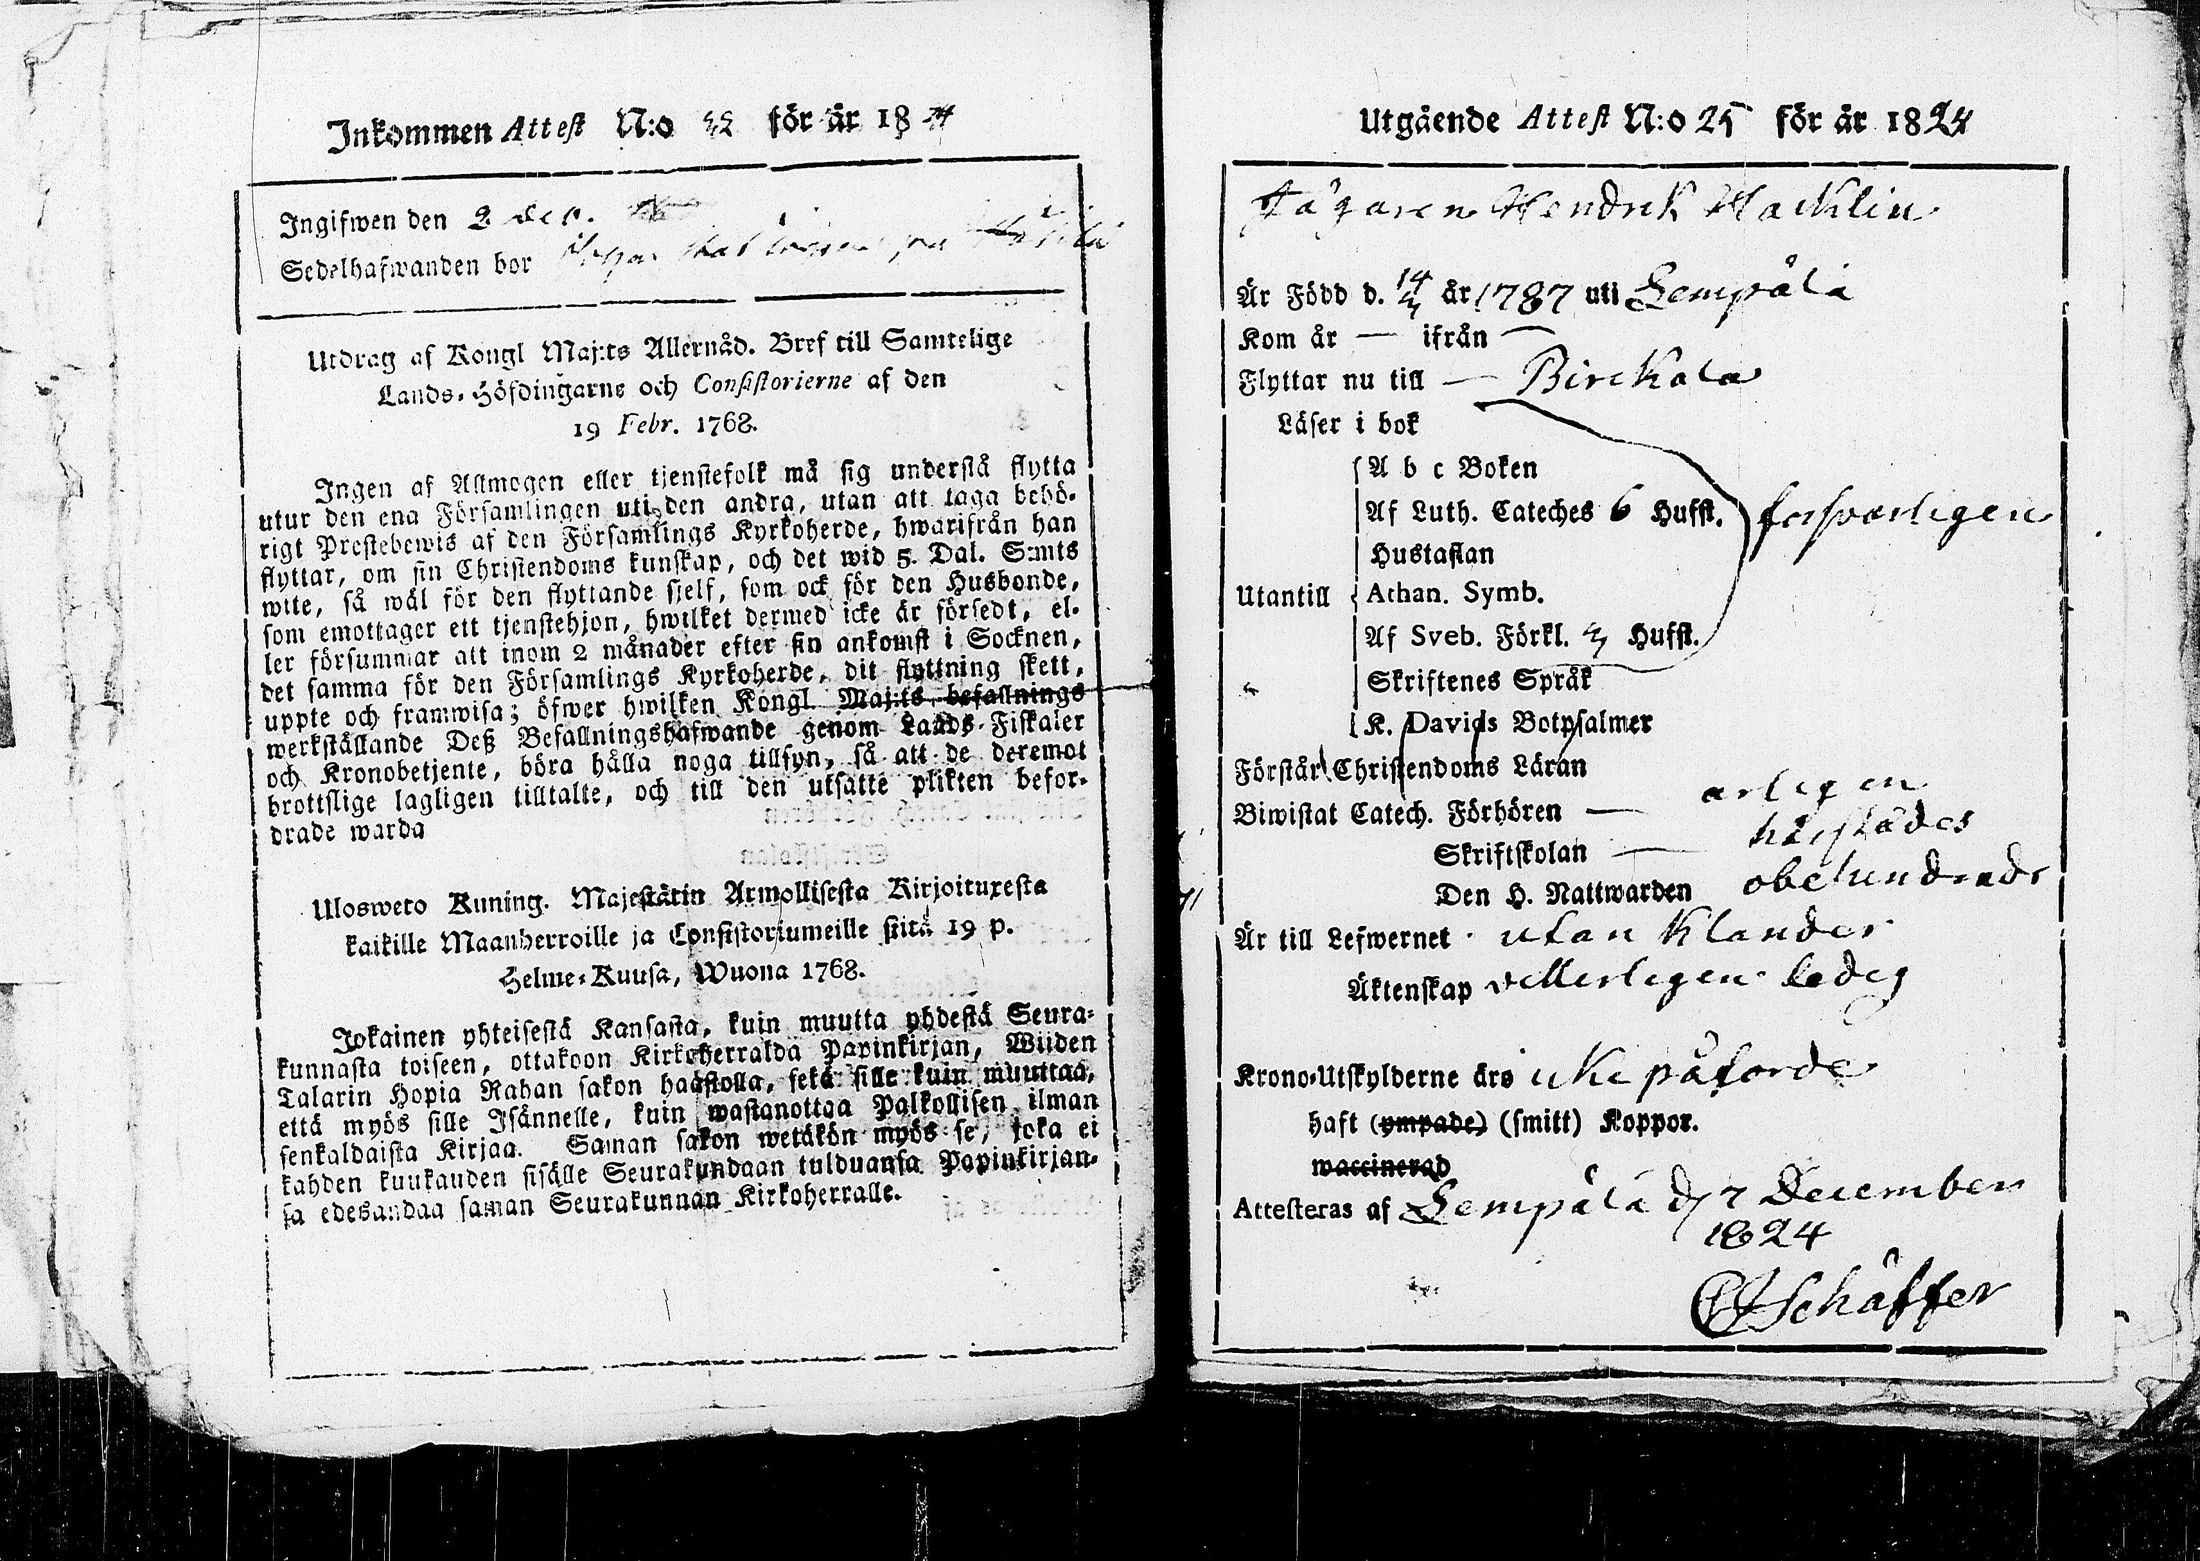 Inkommen Attest N:o 22 för år 1824
Ingifwen den 2 dec.
Sedelhafwanden bor
Utdrag af Kongl Maj:ts Allernåd. Bref till Samtelige
Lands-Höfdingarne och Consistorierne af den
19 Febr. 1768.
Ingen af Allmogen eller tjenstefolk må sig understå flytta
utur den ena Församlingen uti den andra, utan att taga behö-
rigt Prestebewis af den Församlings Kyrkoherde, hwarifrån han
flyttar, om sin Christendoms kunskap, och det wid 5. Dal. S:mts
wite, så wäl för den flyttande sjelf, som ock för den Husbonde,
som emottager ett tjenstehjon, hwilket dermed icke är försedt, el-
ler försummar att inom 2 månader efter sin ankomst i Socknen,
det samma för den Församlings Kyrkoherde, dit flyttning skett,
uppte och framwisa; öfwer hwilken Kongl Maj:ts befallnings
werkställande Deß Befallningshafwande genom Lands-Fiskaler
och Kronobetjente, böra hålla noga tillsyn, så att de deremot
brottslige lagligen tilltalte, och till den utsatte plikten befor-
drade warda
Ulosweto Kuning. Majestätin Armollisesta Kirjoituxesta
kaikille Maanherroille ja Consistoriumeille siitä 19 p.
Helme-Kuusa, Wuona 1768.
Jokainen yhteisestä Kansasta, kuin muutta yhdestä Seura-
kunnasta toiseen, ottakoon Kirkoherralda Papinkirjan, Wiiden
Talarin Hopia Rahan sakon haastolla, sekä sille kuin muuttaa,
että myös sille Isännelle, kuin wastanottaa Palkollisen ilman
senkaldaista Kirjaa. Saman sakon wetäkön myös se, joka ei
kahden kuukauden sisälle Seurakundaan tulduansa Papinkirjan-
sa edesandaa saman Seurakunnan Kirkoherralle.
Utgående Attest N:o 25 för år 1824
Jägaren Hendrik Hacklin
Är Född d. 14 år 1787 uti Lempälä
Kom år — ifrån —
Flyttar nu till — Birckala
Läser i bok
A b c Boken
Af Luth. Cateches 6 Hufst. försvarligen
Hustaflan
Utantill Athan. Symb.
Af Sveb. Förkl. Hufst.
Skriftenes Språk
K. Davids Botpsalmer
Förstår Christendoms Läran
Biwistat Catech. Förhören — arligen
Skriftskolan — härstädes
Den H. Nattwarden obehindrade
Är till Lefwernet utan klander
Äktenskap vitterligen ledig
Krono-Utskylderne äro icke påförde
haft (ympade) (smitt) Koppor.
waccinerad
Attesteras af Lempälä d 7 December
1824
Schäffer